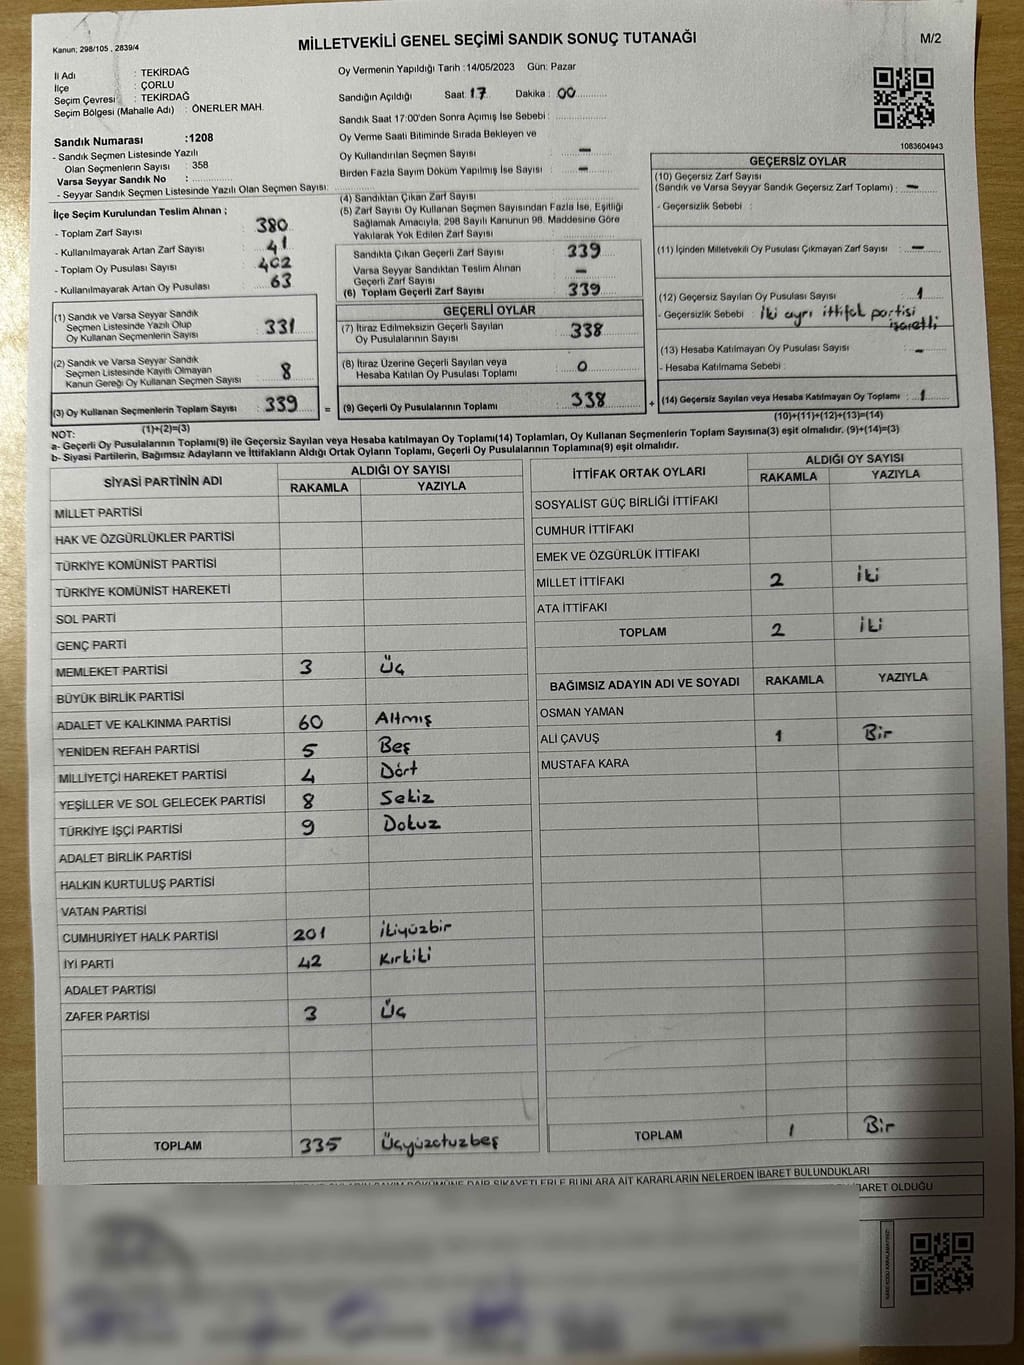 Kanun: 298/105 , 2839/4
MİLLETVEKİLİ GENEL SEÇİMİ SANDIK SONUÇ TUTANAĞI
M/2
İl Adı : TEKİRDAĞ
İlçe : ÇORLU
Seçim Çevresi : TEKİRDAĞ
Seçim Bölgesi (Mahalle Adı) : ÖNERLER MAH.
Oy Vermenin Yapıldığı Tarih :14/05/2023 Gün: Pazar
Sandığın Açıldığı Saat 17 Dakika : 00
Sandık Saat 17:00'den Sonra Açımış İse Sebebi :
Oy Verme Saati Bitiminde Sırada Bekleyen ve
Oy Kullandırılan Seçmen Sayısı : —
Birden Fazla Sayım Döküm Yapılmış İse Sayısı : —
1083604943
Sandık Numarası :1208
- Sandık Seçmen Listesinde Yazılı
Olan Seçmenlerin Sayısı : 358
Varsa Seyyar Sandık No :
- Seyyar Sandık Seçmen Listesinde Yazılı Olan Seçmen Sayısı:
İlçe Seçim Kurulundan Teslim Alınan ;
- Toplam Zarf Sayısı : 380
- Kullanılmayarak Artan Zarf Sayısı : 41
- Toplam Oy Pusulası Sayısı : 402
- Kullanılmayarak Artan Oy Pusulası : 63
(1) Sandık ve Varsa Seyyar Sandık
Seçmen Listesinde Yazılı Olup
Oy Kullanan Seçmenlerin Sayısı : 331
(2) Sandık ve Varsa Seyyar Sandık
Seçmen Listesinde Kayıtlı Olmayan
Kanun Gereği Oy Kullanan Seçmen Sayısı : 8
(3) Oy Kullanan Seçmenlerin Toplam Sayısı : 339
(1)+(2)=(3)
(4) Sandıktan Çıkan Zarf Sayısı :
(5) Zarf Sayısı Oy Kullanan Seçmen Sayısından Fazla İse, Eşitliği
Sağlamak Amacıyla, 298 Sayılı Kanunun 98. Maddesine Göre
Yakılarak Yok Edilen Zarf Sayısı :
Sandıkta Çıkan Geçerli Zarf Sayısı : 339
Varsa Seyyar Sandıktan Teslim Alınan
Geçerli Zarf Sayısı : —
(6) Toplam Geçerli Zarf Sayısı : 339
GEÇERLİ OYLAR
(7) İtiraz Edilmeksizin Geçerli Sayılan
Oy Pusulalarının Sayısı : 338
(8) İtiraz Üzerine Geçerli Sayılan veya
Hesaba Katılan Oy Pusulası Toplamı : 0
= (9) Geçerli Oy Pusulalarının Toplamı : 338
GEÇERSİZ OYLAR
(10) Geçersiz Zarf Sayısı
(Sandık ve Varsa Seyyar Sandık Geçersiz Zarf Toplamı) : —
- Geçersizlik Sebebi :
(11) İçinden Milletvekili Oy Pusulası Çıkmayan Zarf Sayısı : —
(12) Geçersiz Sayılan Oy Pusulası Sayısı : 1
- Geçersizlik Sebebi : iki ayrı ittifak partisi
işaretli
(13) Hesaba Katılmayan Oy Pusulası Sayısı : —
- Hesaba Katılmama Sebebi :
+ (14) Geçersiz Sayılan veya Hesaba Katılmayan Oy Toplamı : 1
(10)+(11)+(12)+(13)=(14)
NOT:
a- Geçerli Oy Pusulalarının Toplamı(9) ile Geçersiz Sayılan veya Hesaba katılmayan Oy Toplamı(14) Toplamları, Oy Kullanan Seçmenlerin Toplam Sayısına(3) eşit olmalıdır. (9)+(14)=(3)
b- Siyasi Partilerin, Bağımsız Adayların ve İttifakların Aldığı Ortak Oyların Toplamı, Geçerli Oy Pusulalarının Toplamına(9) eşit olmalıdır.
SİYASİ PARTİNİN ADI
ALDIĞI OY SAYISI
RAKAMLA YAZIYLA
MİLLET PARTİSİ
HAK VE ÖZGÜRLÜKLER PARTİSİ
TÜRKİYE KOMÜNİST PARTİSİ
TÜRKİYE KOMÜNİST HAREKETİ
SOL PARTİ
GENÇ PARTİ
MEMLEKET PARTİSİ 3 Üç
BÜYÜK BİRLİK PARTİSİ
ADALET VE KALKINMA PARTİSİ 60 Altmış
YENİDEN REFAH PARTİSİ 5 Beş
MİLLİYETÇİ HAREKET PARTİSİ 4 Dört
YEŞİLLER VE SOL GELECEK PARTİSİ 8 Sekiz
TÜRKİYE İŞÇİ PARTİSİ 9 Dokuz
ADALET BİRLİK PARTİSİ
HALKIN KURTULUŞ PARTİSİ
VATAN PARTİSİ
CUMHURİYET HALK PARTİSİ 201 ikiyüzbir
İYİ PARTİ 42 Kırkiki
ADALET PARTİSİ
ZAFER PARTİSİ 3 Üç
TOPLAM 335 Üçyüzotuzbeş
İTTİFAK ORTAK OYLARI
ALDIĞI OY SAYISI
RAKAMLA YAZIYLA
SOSYALİST GÜÇ BİRLİĞİ İTTİFAKI
CUMHUR İTTİFAKI
EMEK VE ÖZGÜRLÜK İTTİFAKI
MİLLET İTTİFAKI 2 iki
ATA İTTİFAKI
TOPLAM 2 iki
BAĞIMSIZ ADAYIN ADI VE SOYADI RAKAMLA YAZIYLA
OSMAN YAMAN
ALİ ÇAVUŞ 1 Bir
MUSTAFA KARA
TOPLAM 1 Bir
DÖKÜMÜNE DAİR ŞİKAYETLERLE BUNLARA AİT KARARLARIN NELERDEN İBARET BULUNDUKLARI
İBARET OLDUĞU